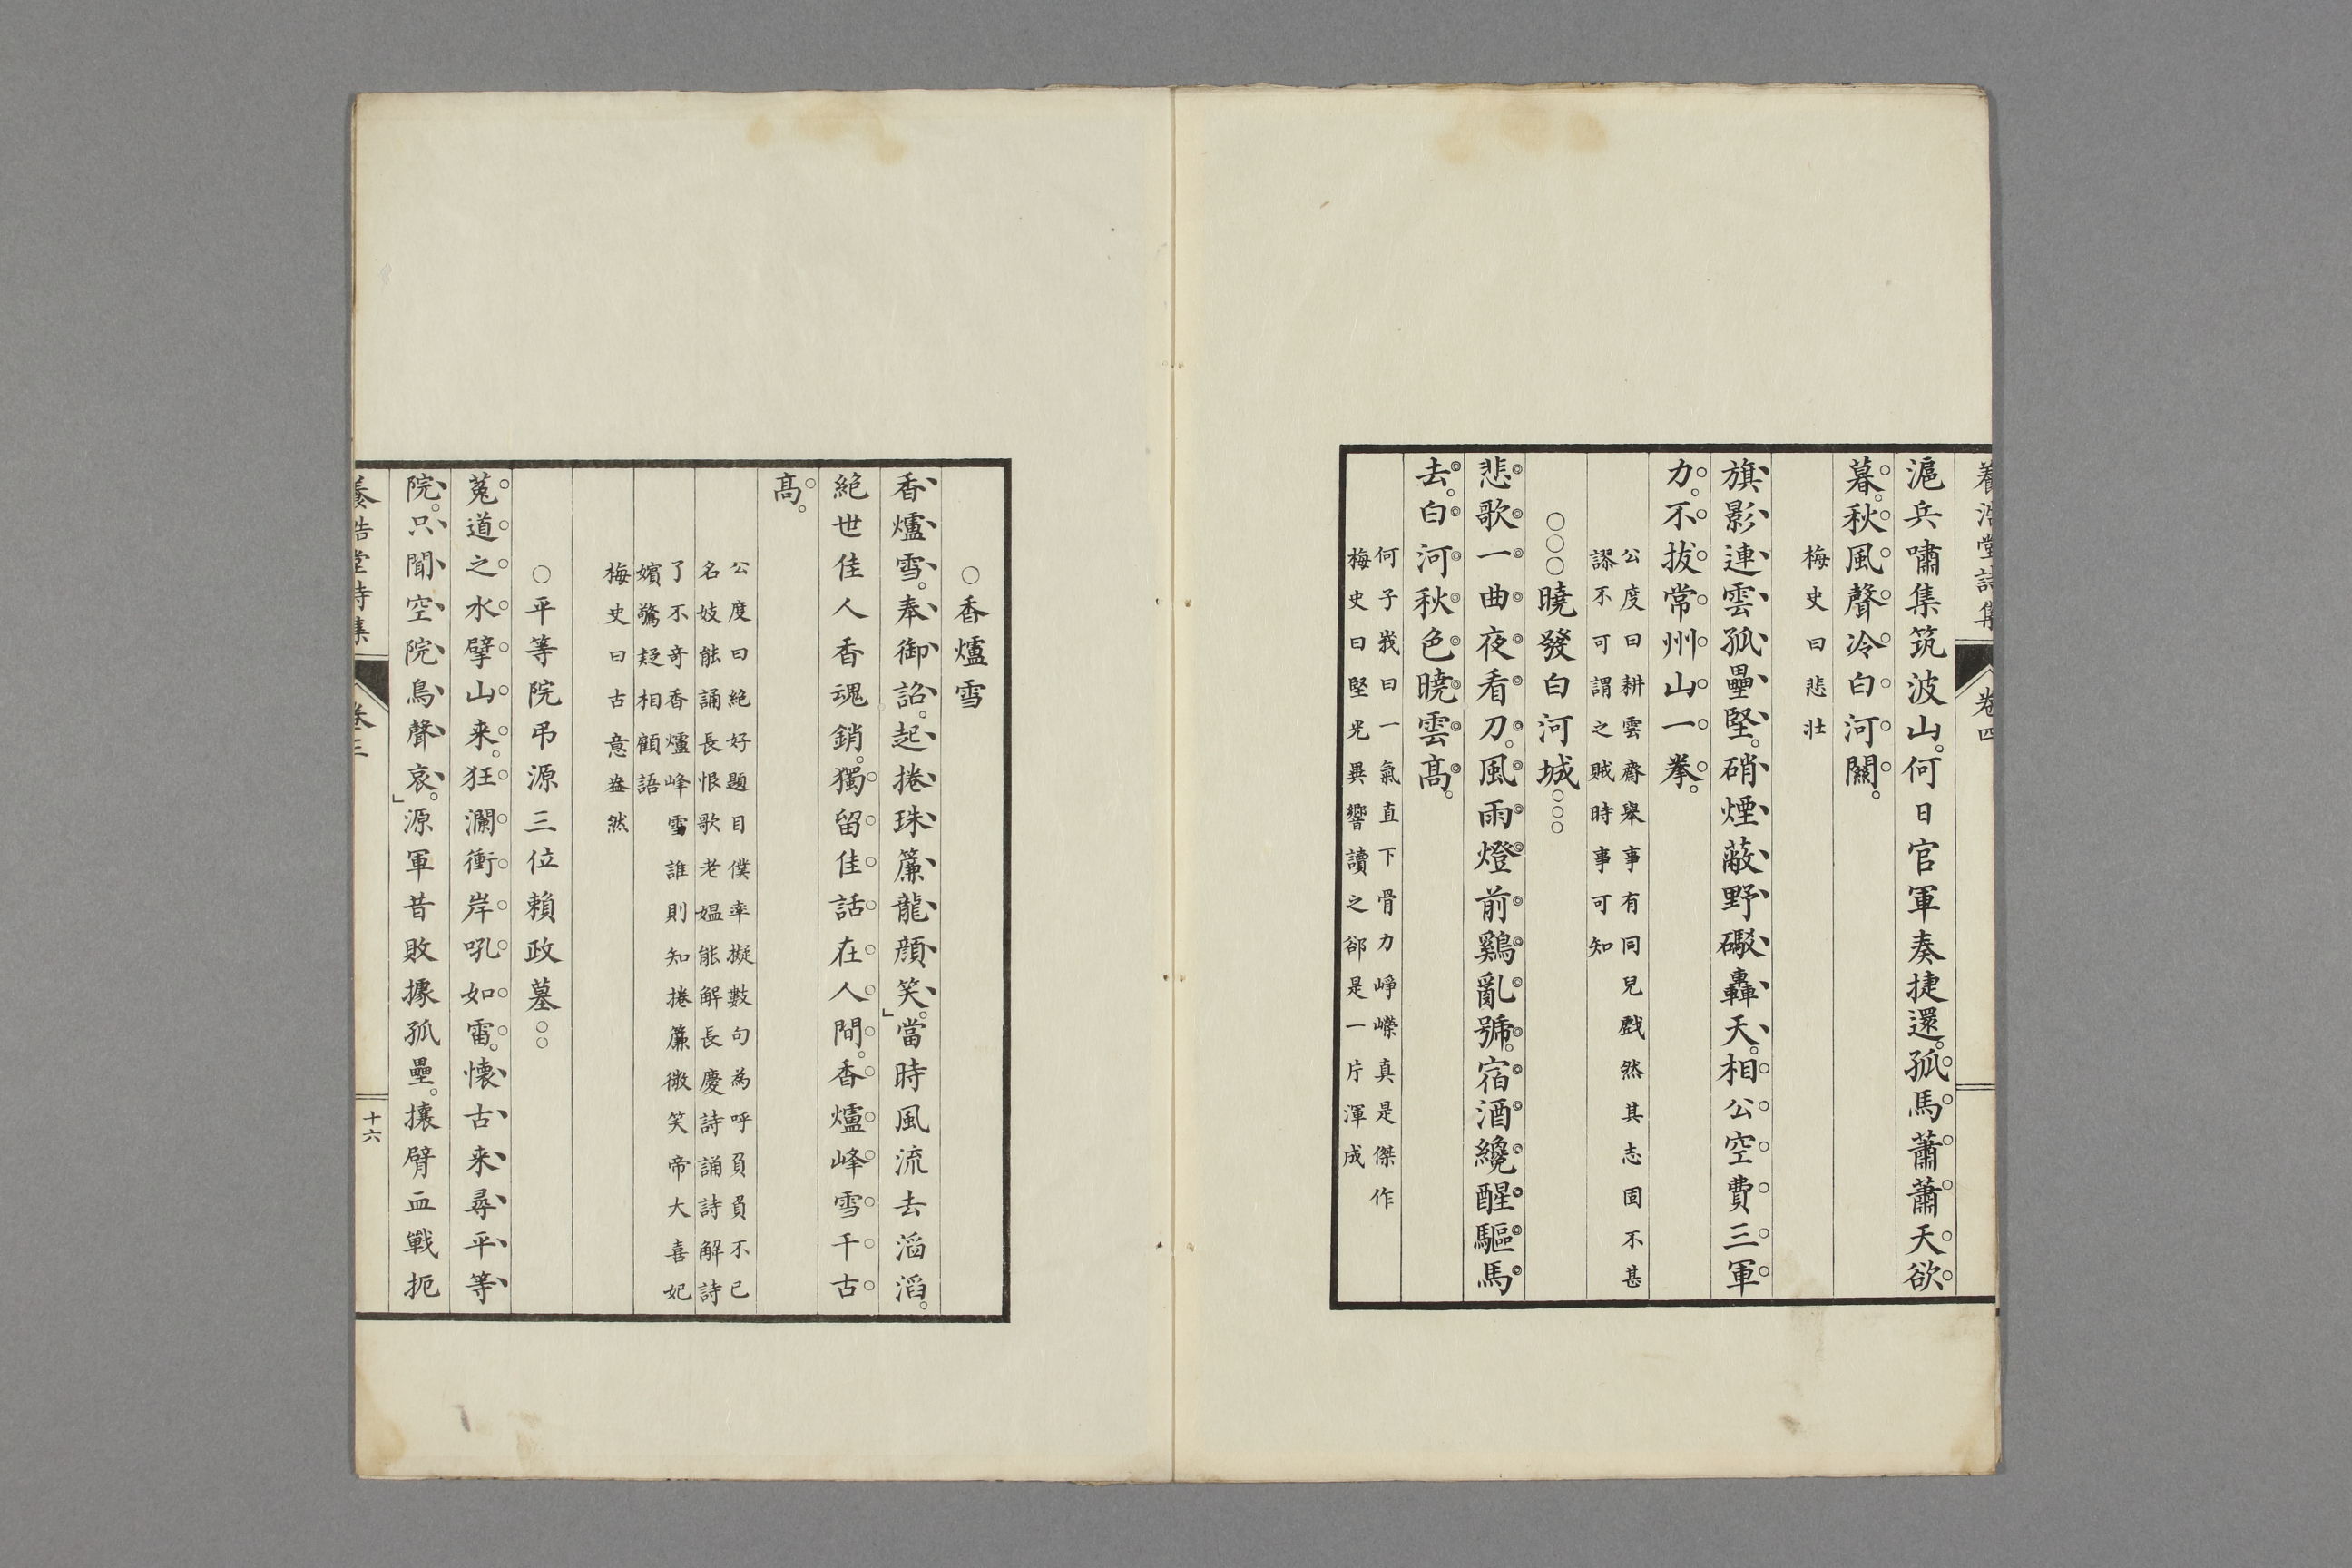 養浩堂詩集 卷四
滬兵嘯集筑波山。何日官軍奏捷還。孤馬蕭蕭天欲
暮。秋風聲冷白河關。
梅史曰悲壯
旗影連雲孤壘堅。硝煙蔽野礮轟天。相公空費三軍
力。不拔常州山一拳。
公度曰耕雲齋舉事有同兒戲然其志固不甚
謬不可謂之賊時事可知
○○○曉發白河城○○○
悲歌一曲夜看刀。風雨燈前鷄亂號。宿酒纔醒驅馬
去。白河秋色曉雲高。
何子峩曰一氣直下骨力崢嶸真是傑作
梅史曰堅光異響讀之卻是一片渾成
○香爐雪
香爐雪。奉御詔。起捲珠簾龍顏笑。」當時風流去滔滔。
絕世佳人香魂銷。獨留佳話在人間。香爐峰雪千古
高。
公度曰絕好題目僕率擬數句為呼負負不已
名妓能誦長恨歌老媼能解長慶詩誦詩解詩
了不奇香爐峰雪誰則知捲簾微笑帝大喜妃
嬪驚疑相顧語
梅史曰古意盎然
○平等院弔源三位賴政墓○○
菟道之水擘山来。狂瀾衝岸吼如雷。懷古来尋平等
院。只聞空院鳥聲哀。」源軍昔敗據孤壘。攘臂血戰扼
養浩堂詩集 卷三 十六